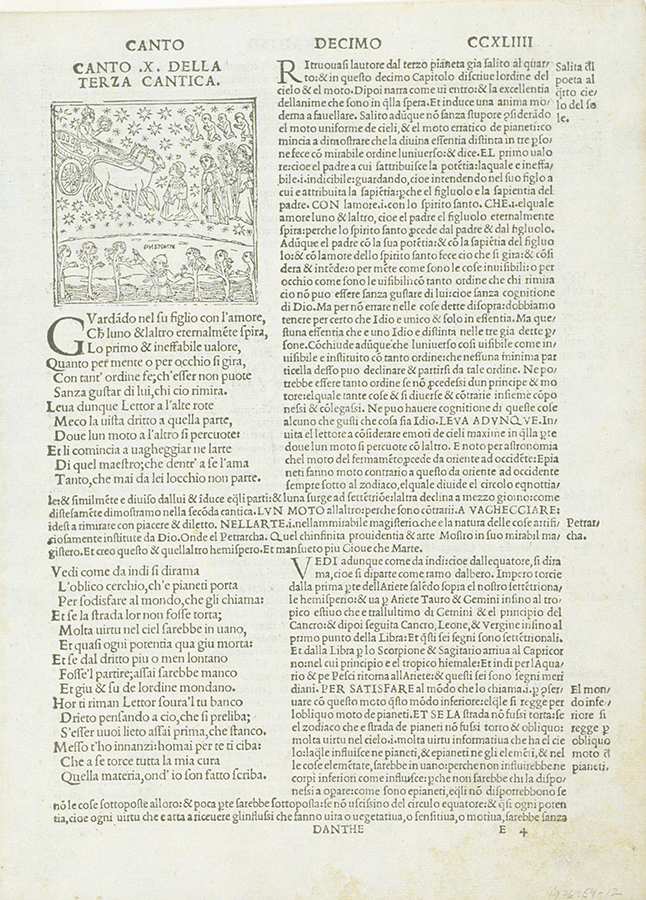 CANTO DECIMO CCXLIIII
CANTO .X. DELLA
TERZA CANTICA.
GVardādo nel su figlio con l'amore,
Ch̄ luno & laltro eternalmēte spira,
Lo primo & ineffabile ualore,
Quanto per mente o per occhio si gira,
Con tant' ordine fe; ch'esser non puote
Sanza gustar di lui, chi cio rimira.
Leua dunque Lettor a l'alte rote
Meco la uista dritto a quella parte,
Doue lun moto a l'altro si percuote:
Et li comincia a uagheggiar ne larte
Di quel maestro; che dentr' a se l'ama
Tanto, che mai da lei locchio non parte.
RItrouasi lautore dal terzo pianeta gia salito al quar/
to: & in questo decimo Capitolo discriue lordine del
cielo & el moto. Dipoi narra come ui entro: & la excellentia
dellanime che sono in q̄lla spera. Et induce una anima mo/
derna a fauellare. Salito adūque nō sanza stupore p̄siderādo
el moto uniforme de cieli, & el moto erratico de pianeti: co
mincia a dimostrare che la diuina essentia distinta in tre pso/
ne fece cō mirabile ordine luniuerso: & dice. EL primo ualo
re: cioe el padre a cui sattribuisce la potētia: laquale e ineffa/
bile .i. indicibile: guardando, cioe intendendo nel suo figlo a
cui e attribuita la sapiētia: p̄che el figluolo e la sapientia del
padre. CON lamore .i. con lo spirito santo. CHE .i. elquale
amore luno & laltro, cioe el padre el figluolo eternalmente
spira: perche lo spirito santo p̄cede dal padre & dal figluolo.
Adūque el padre cō la sua potētia: & cō la sapiētia del figluo
lo: & cō lamore dello spirito santo fece cio che si gira: & cōsi
dera & intēde: o per mēte come sono le cose inuisibili: o per
occhio come sono le uisibili: cō tanto ordine che chi rimira
cio nō puo essere sanza gustare di lui: cioe sanza cognitione
di Dio. Ma per nō errare nelle cose dette disopra: dobbiamo
tenere per certo che Idio e unico & solo in essentia. Ma que/
stuna essentia che e uno Idio e distinta nelle tre gia dette p/
sone. Cōchiude adūque che luniuerso cosi uisibile come in/
uisibile e instituito cō tanto ordine: che nessuna minima par
ticella desso puo declinare & partirsi da tale ordine. Ne po/
trebbe essere tanto ordine se nō p̄cedessi dun principe & mo
tore: elquale tante cose & si diuerse & cōtrarie insieme cōpo
nessi & cōlegassi. Ne puo hauere cognitione di queste cose
alcuno che gusti che cosa sia Idio. LEVA ADVNQVE. In/
uita el lettore a cōsiderare e moti de cieli maxime in q̄lla pte
doue lun moto si percuote cō laltro. E noto per astronomia
chel moto del fermamēto p̄cede da oriente ad occidēte: E pia
neti fanno moto contrario a questo da oriente ad occidente
sempre sotto al zodiaco, elquale diuide el circolo eqnottia/
le: & similmēte e diuiso dallui & īduce eq̄li parti: & luna surge ad settētriōe: laltra declina a mezzo giorno: come
distesamēte dimostramo nella secōda cantica. LVN MOTO allaltro: perche sono cōtrarii. A VAGHECCIARE:
idest a rimirare con piacere & diletto. NELLARTE .i. nellammirabile magisterio, che e la natura delle cose artifi/
ciosamente instituite da Dio. Onde el Petrarcha. Quel chinfinita prouidentia & arte Mostro in suo mirabil ma/
gistero. Et creo questo & quellaltro hemispero. Et mansueto piu Gioue che Marte.
Salita dl
poeta al
q̄rto cie/
lo del so
le.
Petrar/
cha.
Vedi come da indi si dirama
L'oblico cerchio, ch'e pianeti porta
Per sodisfare al mondo, che gli chiama:
Et se la strada lor non fosse torta;
Molta uirtu nel ciel sarebbe in uano,
Et quasi ogni potentia qua giu morta:
Et se dal dritto piu o men lontano
Fosse'l partire; assai sarebbe manco
Et giu & su de lordine mondano.
Hor ti riman Lettor soura'l tu banco
Drieto pensando a cio, che si preliba;
S'esser uuoi lieto assai prima, che stanco.
Messo t'ho innanzi: homai per te ti ciba:
Che a se torce tutta la mia cura
Quella materia, ond' io son fatto scriba.
VEDI adunque come da indi: cioe dallequatore, si dira
ma, cioe si diparte come ramo dalbero. Impero torcie
dalla prima pte dell Ariete salēdo sopra el nostro settētriona/
le hemispero: & ua p Ariete Tauro & Gemini insino al tro/
pico estiuo che e trallultimo di Gemini & el principio del
Cancro: & dipoi seguita Cancro, Leone, & Vergine insino al
primo punto della Libra: Et q̄sti sei segni sono settētrionali.
Et dalla Libra p lo Scorpione & Sagitario arriua al Capricor
no: nel cui principio e el tropico hiemale: Et indi per l'Aqua/
rio & pe Pesci ritorna all Ariete: & questi sei sono segni meri
diani. PER SATISFARE al mōdo che lo chiama .i. p p̄ser/
uare cō questo moto q̄sto mōdo inferiore: elq̄le si regge per
lobliquo moto de pianeti. ET SE LA strada nō fussi torta: se
el zodiaco che e strada de pianeti nō fussi torto & obliquo:
molta uirtu nel cielo .i. molta uirtu informatiua che ha el cie
lo: laq̄le influisce ne pianeti, & e pianeti ne gli elemēti, & nel
le cose elemētate, sarebbe in uano: perche non influirebbe ne
corpi inferiori come influisce: p̄che non sarebbe chi la dispo/
nessi a opare: come sono e pianeti, eq̄li nō disporrebbono se
nō le cose sottoposte alloro: & poca pte sarebbe sottoposta: se nō uscissino del circulo equatore: & q̄si ogni poten
tia, cioe ogni uirtu che e atta a riceuere glinflussi che fanno uita o uegetatiua, o sensitiua, o motiua, sarebbe sanza
El mon/
do infe/
riore si
regge p
obliquo
moto d
pianeti.
DANTHE E 4
1976:54-12